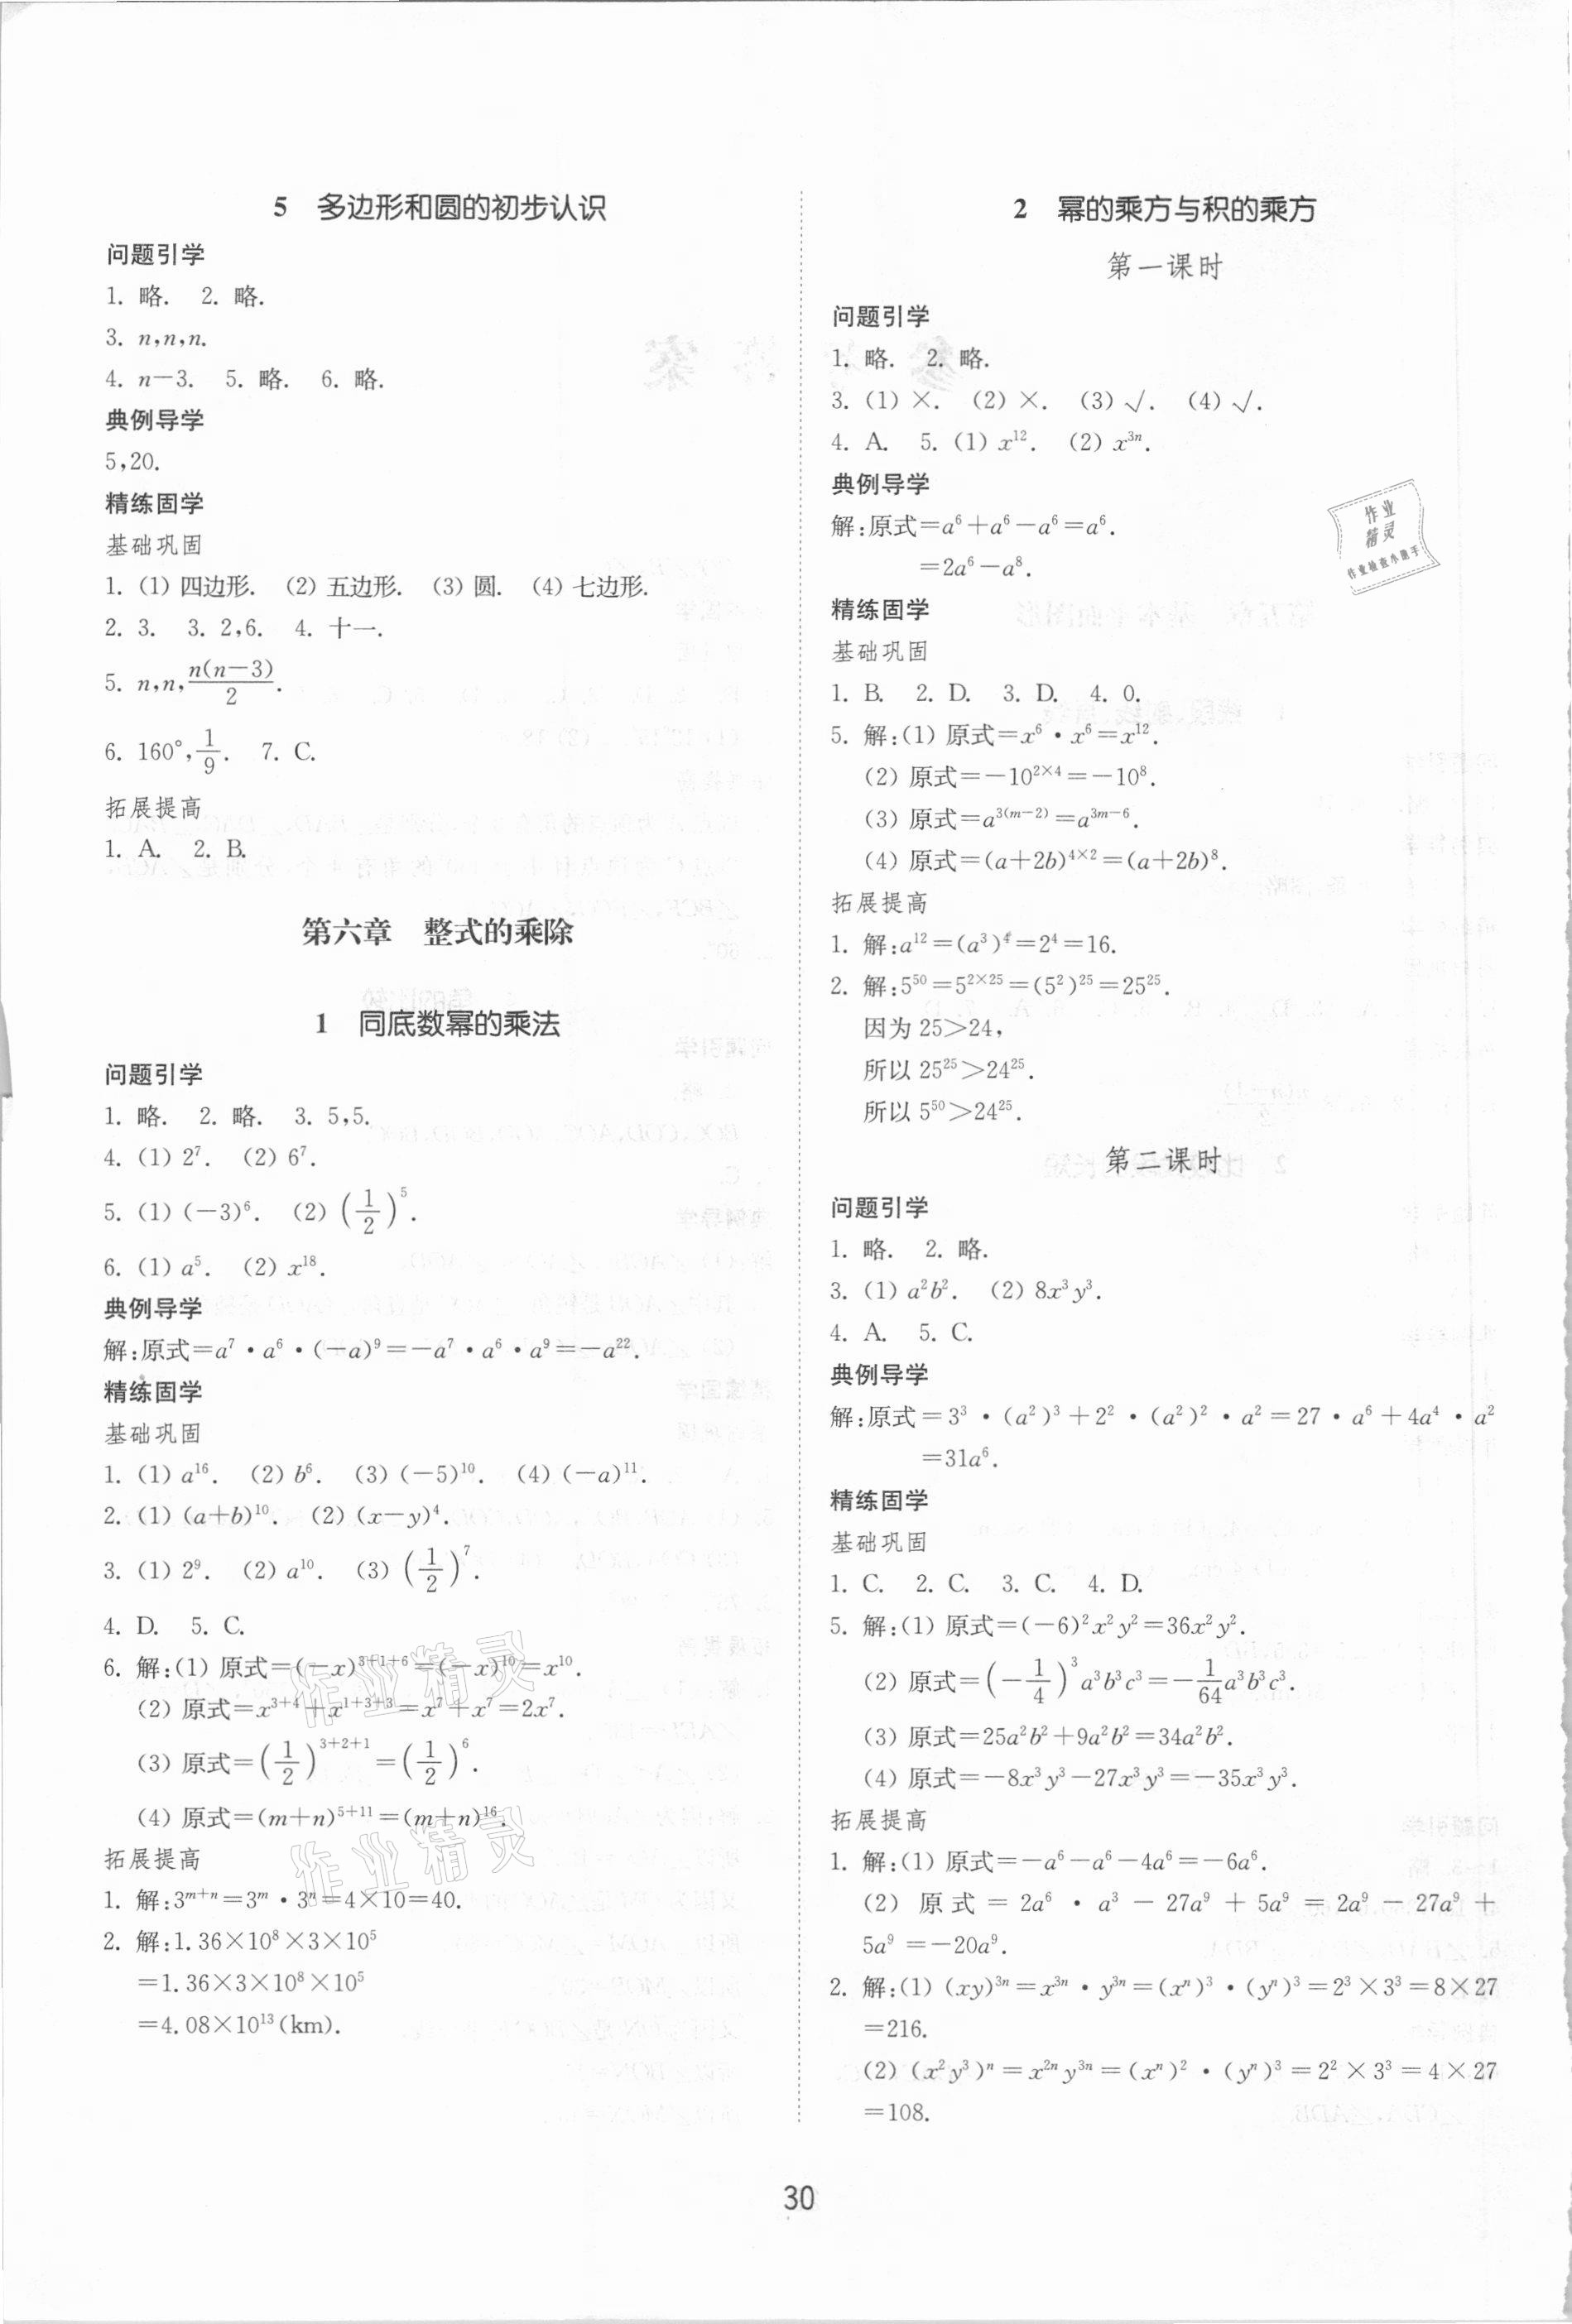 5 多边形和圆的初步认识
问题引学
1. 略. 2. 略.
3. n,n,n.
4. n-3. 5. 略. 6. 略.
典例导学
5,20.
精练固学
基础巩固
1. (1) 四边形. (2) 五边形. (3) 圆. (4) 七边形.
2. 3. 3. 2,6. 4. 十一.
5. n,n,n(n-3)/2.
6. 160°,1/9. 7. C.
拓展提高
1. A. 2. B.
第六章 整式的乘除
1 同底数幂的乘法
问题引学
1. 略. 2. 略. 3. 5,5.
4. (1) 2⁷. (2) 6⁷.
5. (1) (-3)⁶. (2) (1/2)⁵.
6. (1) a⁵. (2) x¹⁸.
典例导学
解:原式=a⁷·a⁶·(-a)⁹=-a⁷·a⁶·a⁹=-a²².
精练固学
基础巩固
1. (1) a¹⁶. (2) b⁶. (3) (-5)¹⁰. (4) (-a)¹¹.
2. (1) (a+b)¹⁰. (2) (x-y)⁴.
3. (1) 2⁹. (2) a¹⁰. (3) (1/2)⁷.
4. D. 5. C.
6. 解:(1) 原式=(-x)³⁺¹⁺⁶=(-x)¹⁰=x¹⁰.
(2) 原式=x³⁺⁴+x¹⁺³⁺³=x⁷+x⁷=2x⁷.
(3) 原式=(1/2)³⁺²⁺¹=(1/2)⁶.
(4) 原式=(m+n)⁵⁺¹¹=(m+n)¹⁶.
拓展提高
1. 解:3ᵐ⁺ⁿ=3ᵐ·3ⁿ=4×10=40.
2. 解:1.36×10⁸×3×10⁵
=1.36×3×10⁸×10⁵
=4.08×10¹³(km).
2 幂的乘方与积的乘方
第一课时
问题引学
1. 略. 2. 略.
3. (1) ×. (2) ×. (3) √. (4) √.
4. A. 5. (1) x¹². (2) x³ⁿ.
典例导学
解:原式=a⁶+a⁶-a⁶=a⁶.
=2a⁶-a⁸.
精练固学
基础巩固
1. B. 2. D. 3. D. 4. 0.
5. 解:(1) 原式=x⁶·x⁶=x¹².
(2) 原式=-10²ˣ⁴=-10⁸.
(3) 原式=a³⁽ᵐ⁻²⁾=a³ᵐ⁻⁶.
(4) 原式=(a+2b)⁴ˣ²=(a+2b)⁸.
拓展提高
1. 解:a¹²=(a³)⁴=2⁴=16.
2. 解:5⁵⁰=5²ˣ²⁵=(5²)²⁵=25²⁵.
因为 25>24,
所以 25²⁵>24²⁵.
所以 5⁵⁰>24²⁵.
第二课时
问题引学
1. 略. 2. 略.
3. (1) a²b². (2) 8x³y³.
4. A. 5. C.
典例导学
解:原式=3³·(a²)³+2²·(a²)²·a²=27·a⁶+4a⁴·a²
=31a⁶.
精练固学
基础巩固
1. C. 2. C. 3. C. 4. D.
5. 解:(1) 原式=(-6)²x²y²=36x²y².
(2) 原式=(-1/4)³a³b³c³=-1/64a³b³c³.
(3) 原式=25a²b²+9a²b²=34a²b².
(4) 原式=-8x³y³-27x³y³=-35x³y³.
拓展提高
1. 解:(1) 原式=-a⁶-a⁶-4a⁶=-6a⁶.
(2) 原式=2a⁶·a³-27a⁹+5a⁹=2a⁹-27a⁹+
5a⁹=-20a⁹.
2. 解:(1) (xy)³ⁿ=x³ⁿ·y³ⁿ=(xⁿ)³·(yⁿ)³=2³×3³=8×27
=216.
(2) (x²y³)ⁿ=x²ⁿy³ⁿ=(xⁿ)²·(yⁿ)³=2²×3³=4×27
=108.
作业
精灵
作业检查小助手
作业精灵
作业精灵
30